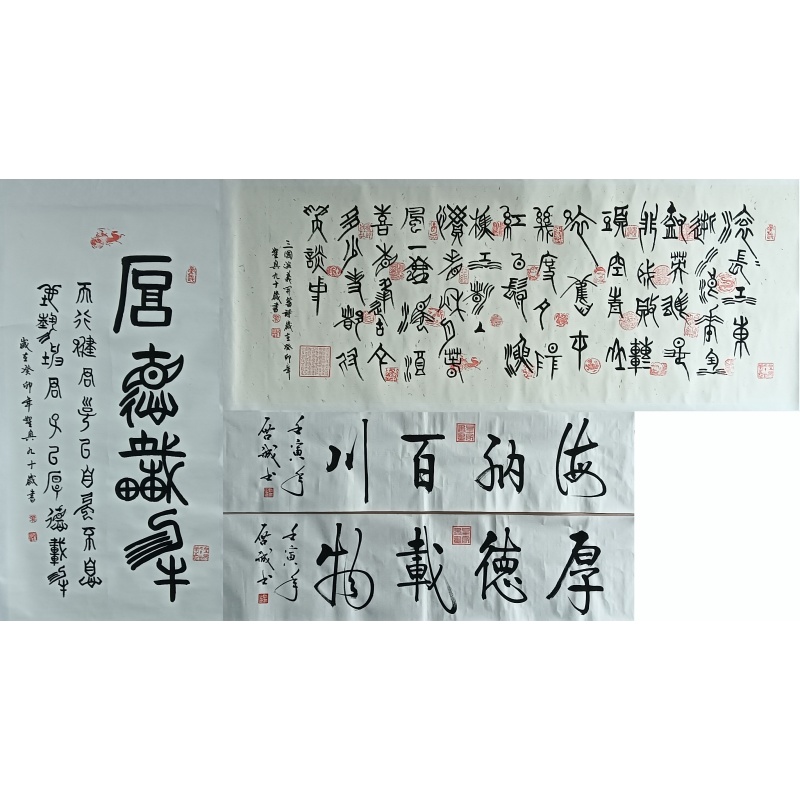 厚德載物
天行健君子以自强不息
地勢坤君子以厚德載物
歲在癸卯年 九十歲書
滚長江東
逝水浪花淘
盡英雄是
非成敗轉
頭空青山
依舊在
幾度夕陽
紅白髮漁
樵江渚上
慣看秋月春
風一壺濁酒
喜相逢古今
多少事都付
笑談中
三國演義開篇詞歲在癸卯年
九十歲書
海納百川
壬寅年
居誠书
厚德載物
壬寅年
居誠书